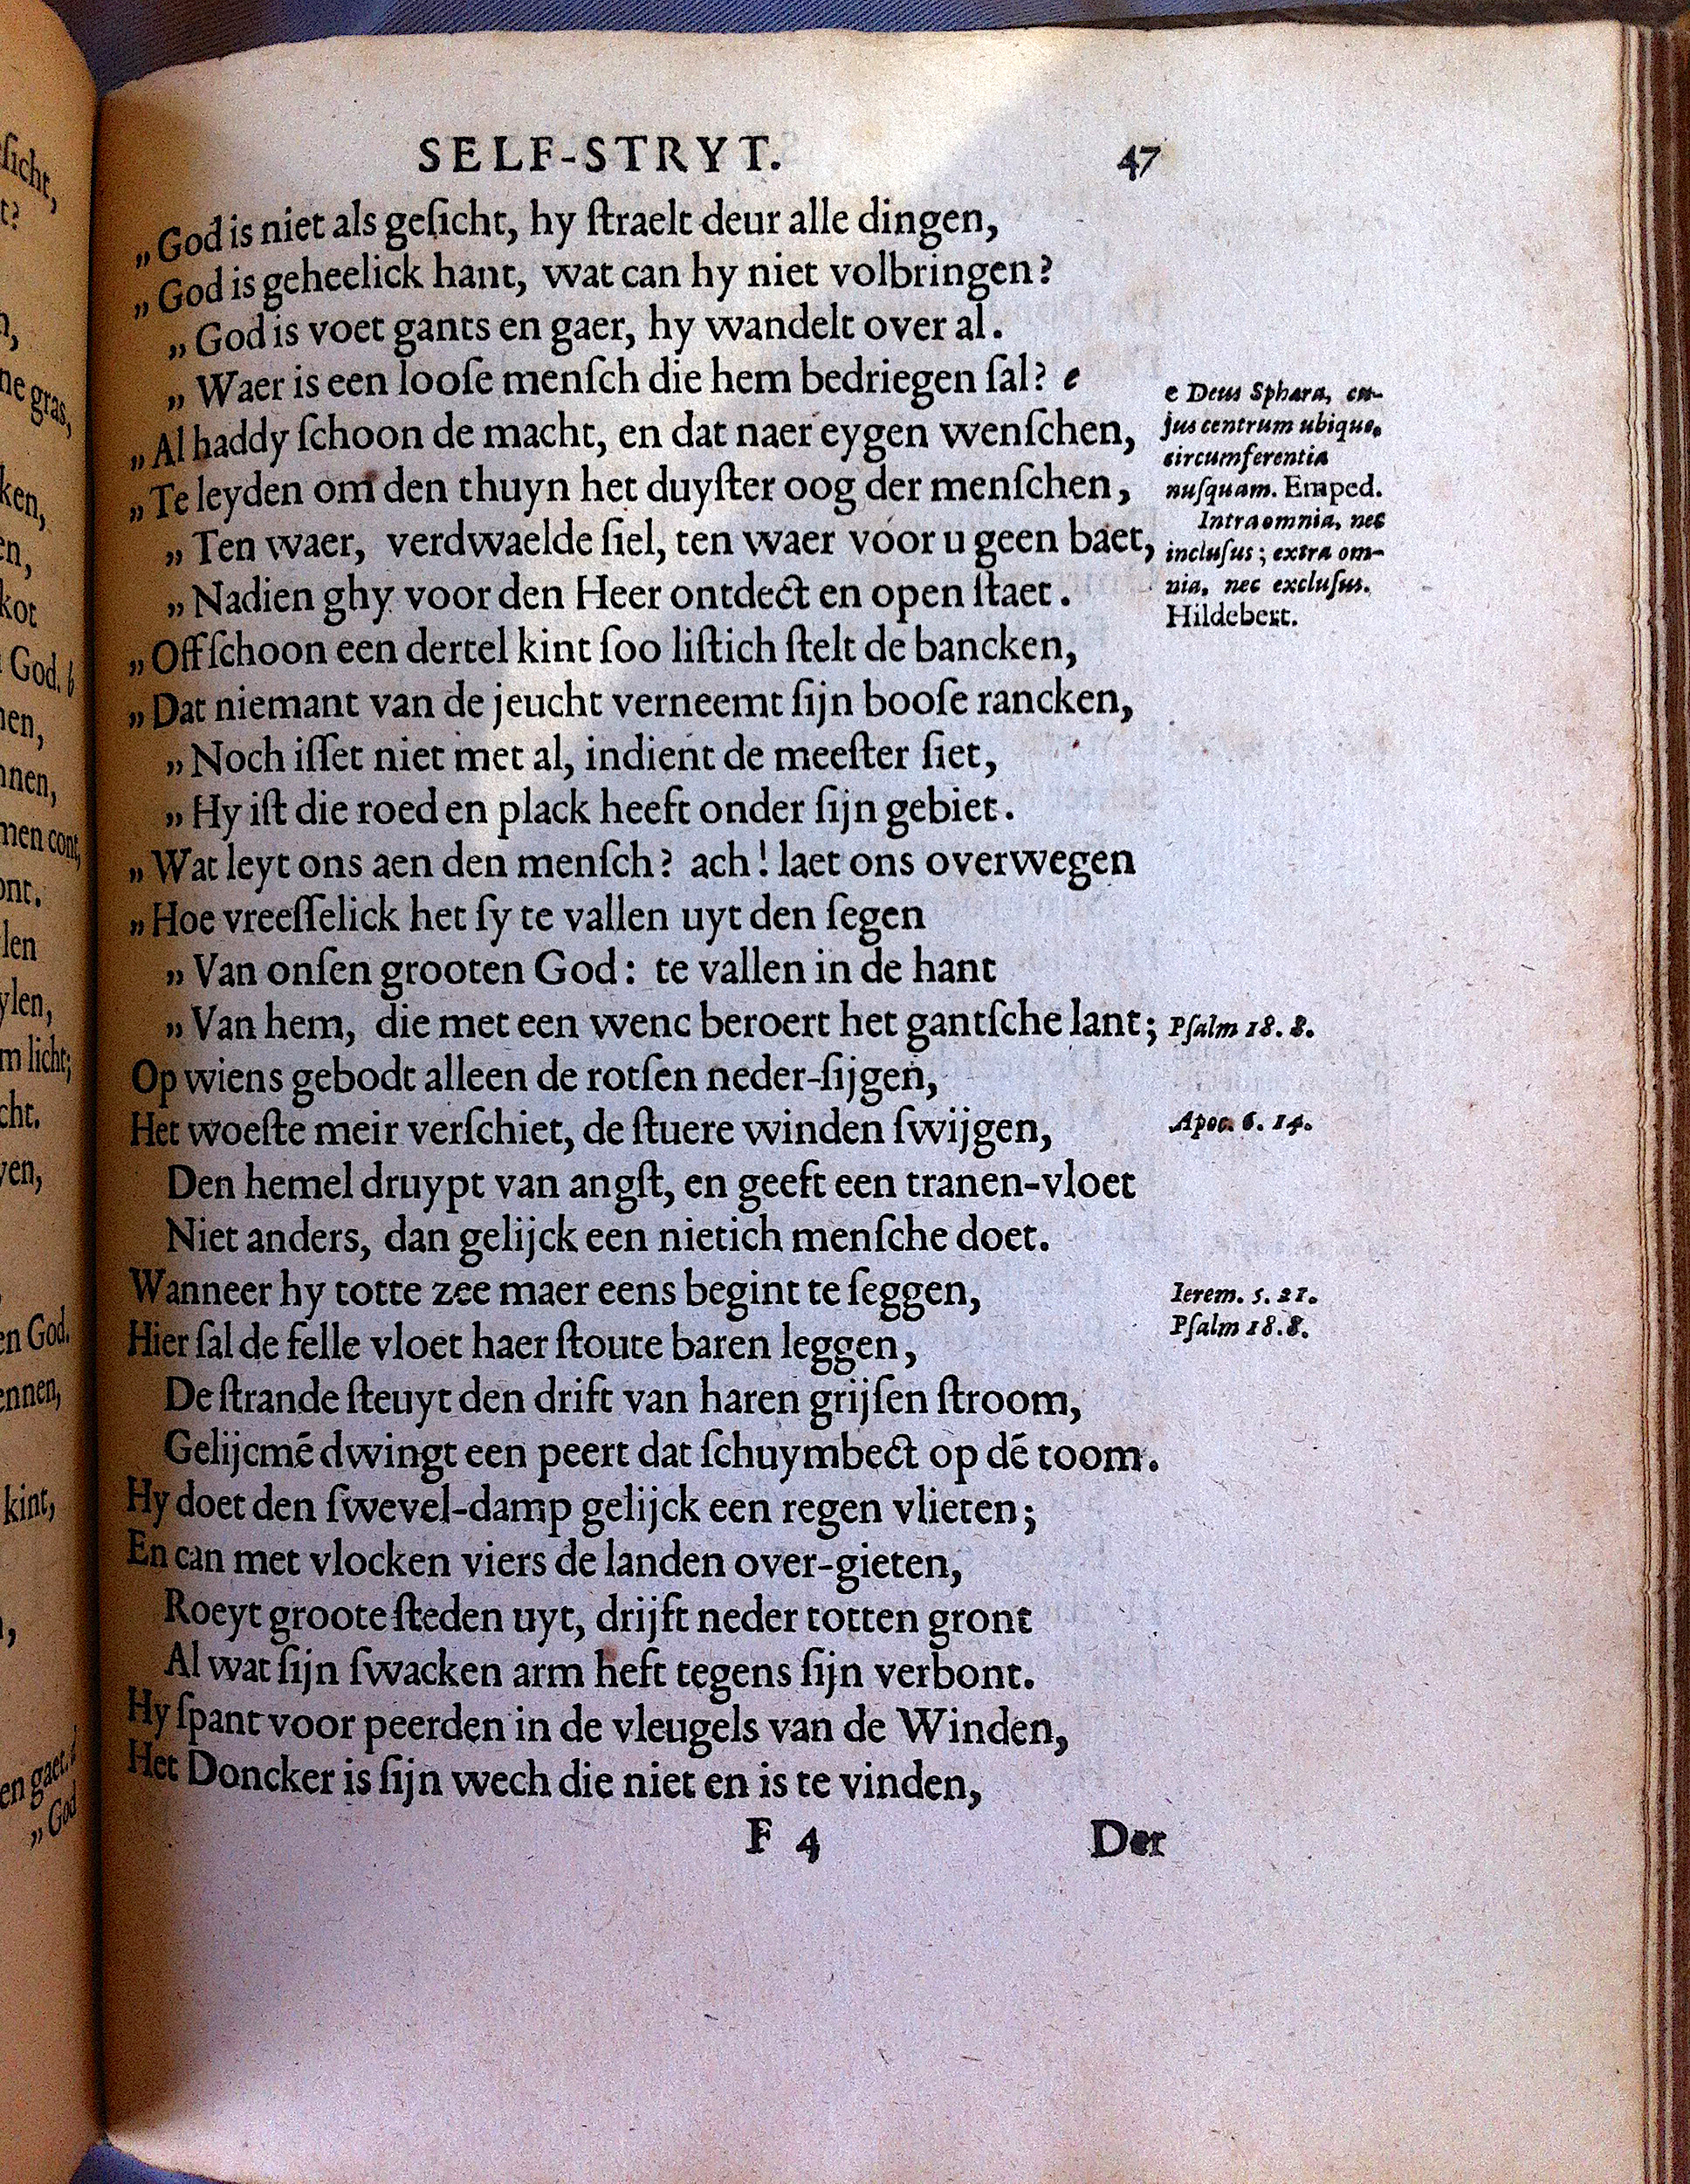 SELF-STRYT. 47
„God is niet als geſicht, hy ſtraelt deur alle dingen,
„God is geheelick hant, wat can hy niet volbringen?
„God is voet gants en gaer, hy wandelt over al.
„Waer is een looſe menſch die hem bedriegen ſal? e
„Al haddy ſchoon de macht, en dat naer eygen wenſchen,
„Te leyden om den thuyn het duyſter oog der menſchen,
„Ten waer, verdwaelde ſiel, ten waer voor u geen baet,
„Nadien ghy voor den Heer ontdect en open ſtaet.
„Off ſchoon een dertel kint ſoo liſtich ſtelt de bancken,
„Dat niemant van de jeucht verneemt ſijn booſe rancken,
„Noch iſſet niet met al, indient de meeſter ſiet,
„Hy iſt die roed en plack heeft onder ſijn gebiet.
„Wat leyt ons aen den menſch? ach! laet ons overwegen
„Hoe vreeſſelick het ſy te vallen uyt den ſegen
„Van onſen grooten God: te vallen in de hant
„Van hem, die met een wenc beroert het gantſche lant;
Op wiens gebodt alleen de rotſen neder-ſijgen,
Het woeſte meir verſchiet, de ſtuere winden ſwijgen,
Den hemel druypt van angſt, en geeft een tranen-vloet
Niet anders, dan gelijck een nietich menſche doet.
Wanneer hy totte zee maer eens begint te ſeggen,
Hier ſal de felle vloet haer ſtoute baren leggen,
De ſtrande ſteuyt den drift van haren grijſen ſtroom,
Gelijcmẽ dwingt een peert dat ſchuymbect op dẽ toom.
Hy doet den ſwevel-damp gelijck een regen vlieten;
En can met vlocken viers de landen over-gieten,
Roeyt groote ſteden uyt, drijft neder totten gront
Al wat ſijn ſwacken arm heft tegens ſijn verbont.
Hy ſpant voor peerden in de vleugels van de Winden,
Het Doncker is ſijn wech die niet en is te vinden,
F 4 Der
e Deus Sphæra, cu-
jus centrum ubique,
circumferentia
nuſquam. Emped.
Intra omnia, nec
incluſus; extra om-
nia, nec excluſus.
Hildebert.
Pſalm 18. 8.
Apoc. 6. 14.
Ierem. 5. 21.
Pſalm 18. 8.
ſicht,
t?
ne gras,
ken,
en,
kot
God. b
nen,
nnen,
men cont,
ont.
len
ylen,
m licht;
cht.
ven,
en God.
ennen,
kint,
en gaet. d
„God